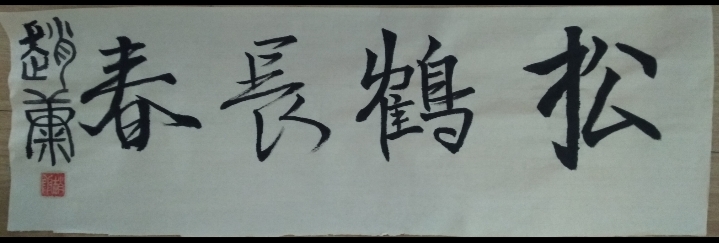 松鶴長春
趙